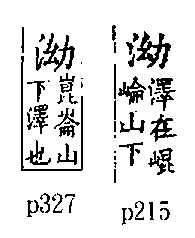 泑
崑崙山
下澤也
p327
泑
澤在崐
崘山下
p215